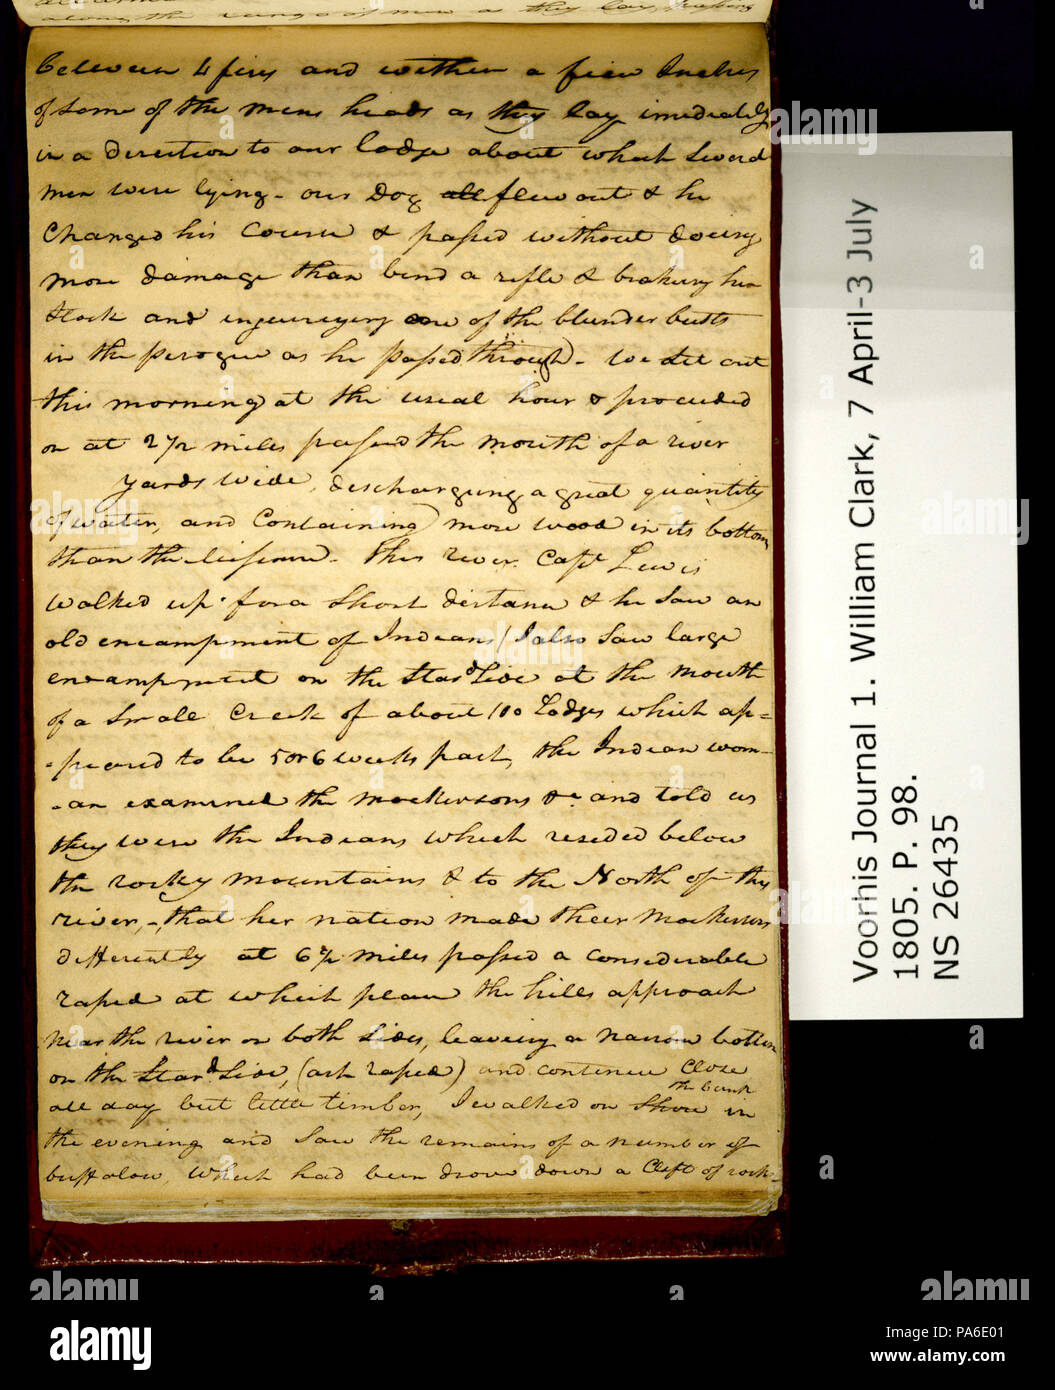 between 4 fires and within a fiew Inches
of Some of the mens heads as they lay imediately
in a direction to our lodge about which Several
men were lying - our Dog flew out & he
Changed his Course & passed without doeing
more damage than bend a rifle & brakeing her
Stock and injureying one of the blunder busts
in the perogue as he passed through - We Set out
this morning at the usual hour & proceeded
on at 2 1/2 miles passed the mouth of a river
yards wide, discharging a great quantity
of water, and Containing more wood in its bottoms
than the Missouri - this river Capt Lewis
walked up for a Short distance & he Saw an
old encampment of Indians (I also Saw large
encampment on the Stard Side at the mouth
of a Small Creek of about 100 Lodges which ap=
-peared to be 5 or 6 weeks past, the Indian wom-
-an examined the mockersons &c and told us
they were the Indians which resided below
the rocky mountains & to the North of this
river,- that her nation made their mockersons
differently at 6 1/2 miles passed a considerable
rapid at which place the hills approach
near the river on both Sides, leaveing a narrow bottom
on the Stard Side, (ash rapid) and continue Close
all day but little timber, I walked on Shore in
the bank
the evening and Saw the remains of a number of
buffalow, which had been drove down a Clift of rocks
Voorhis Journal 1. William Clark, 7 April-3 July
1805. P. 98.
NS 26435
alamy
Image ID: PA6E01
www.alamy.com